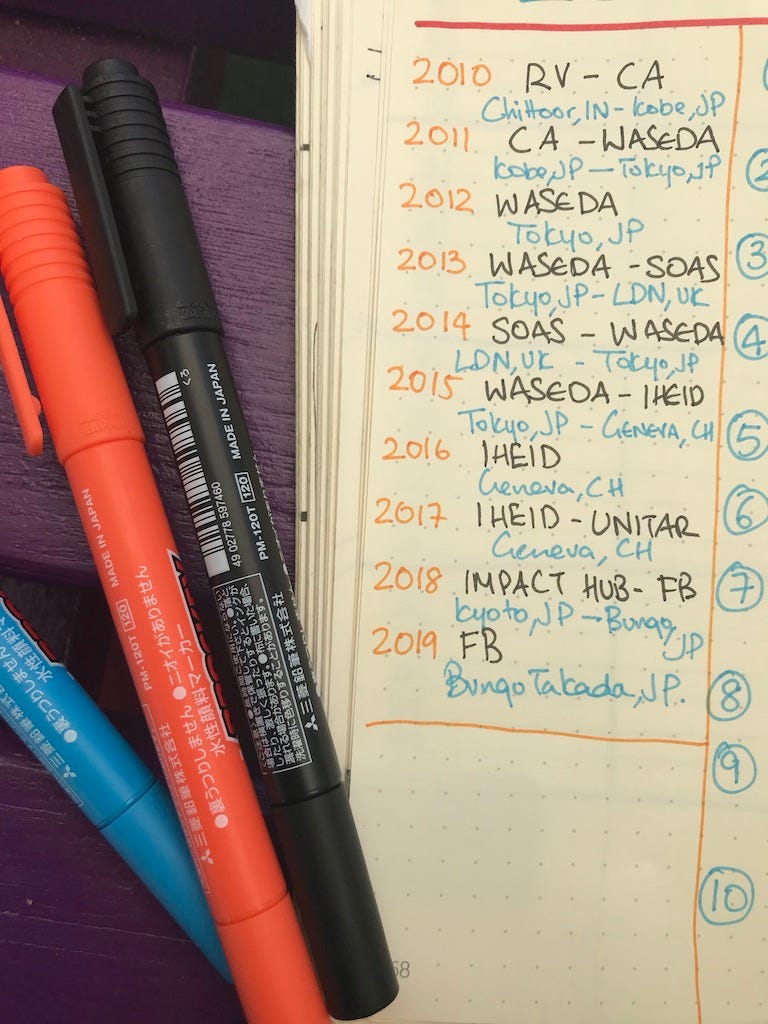 2010 RV - CA
Chittoor, IN - Kobe, JP
2011 CA - WASEDA
Kobe, JP - Tokyo, JP
2012 WASEDA
Tokyo, JP
2013 WASEDA - SOAS
Tokyo, JP - LDN, UK
2014 SOAS - WASEDA
LDN, UK - Tokyo, JP
2015 WASEDA - IHEID
Tokyo, JP - GENEVA, CH
2016 IHEID
Geneva, CH
2017 IHEID - UNITAR
Geneva, CH
2018 IMPACT HUB - FB
Kyoto, JP - Bungo, JP
2019 FB
Bungo Takada, JP.
2
3
4
5
6
7
8
9
10
68
くろ
MADE IN JAPAN
4902778 597460
PM-120T 120
三菱鉛筆株式会社
MADE IN JAPAN
PM-120T 120
●裏うつりしません ●ニオイがありません
水性顔料マーカー
三菱鉛筆株式会社
●裏うつりしません
水性顔料
三菱鉛筆株式会社